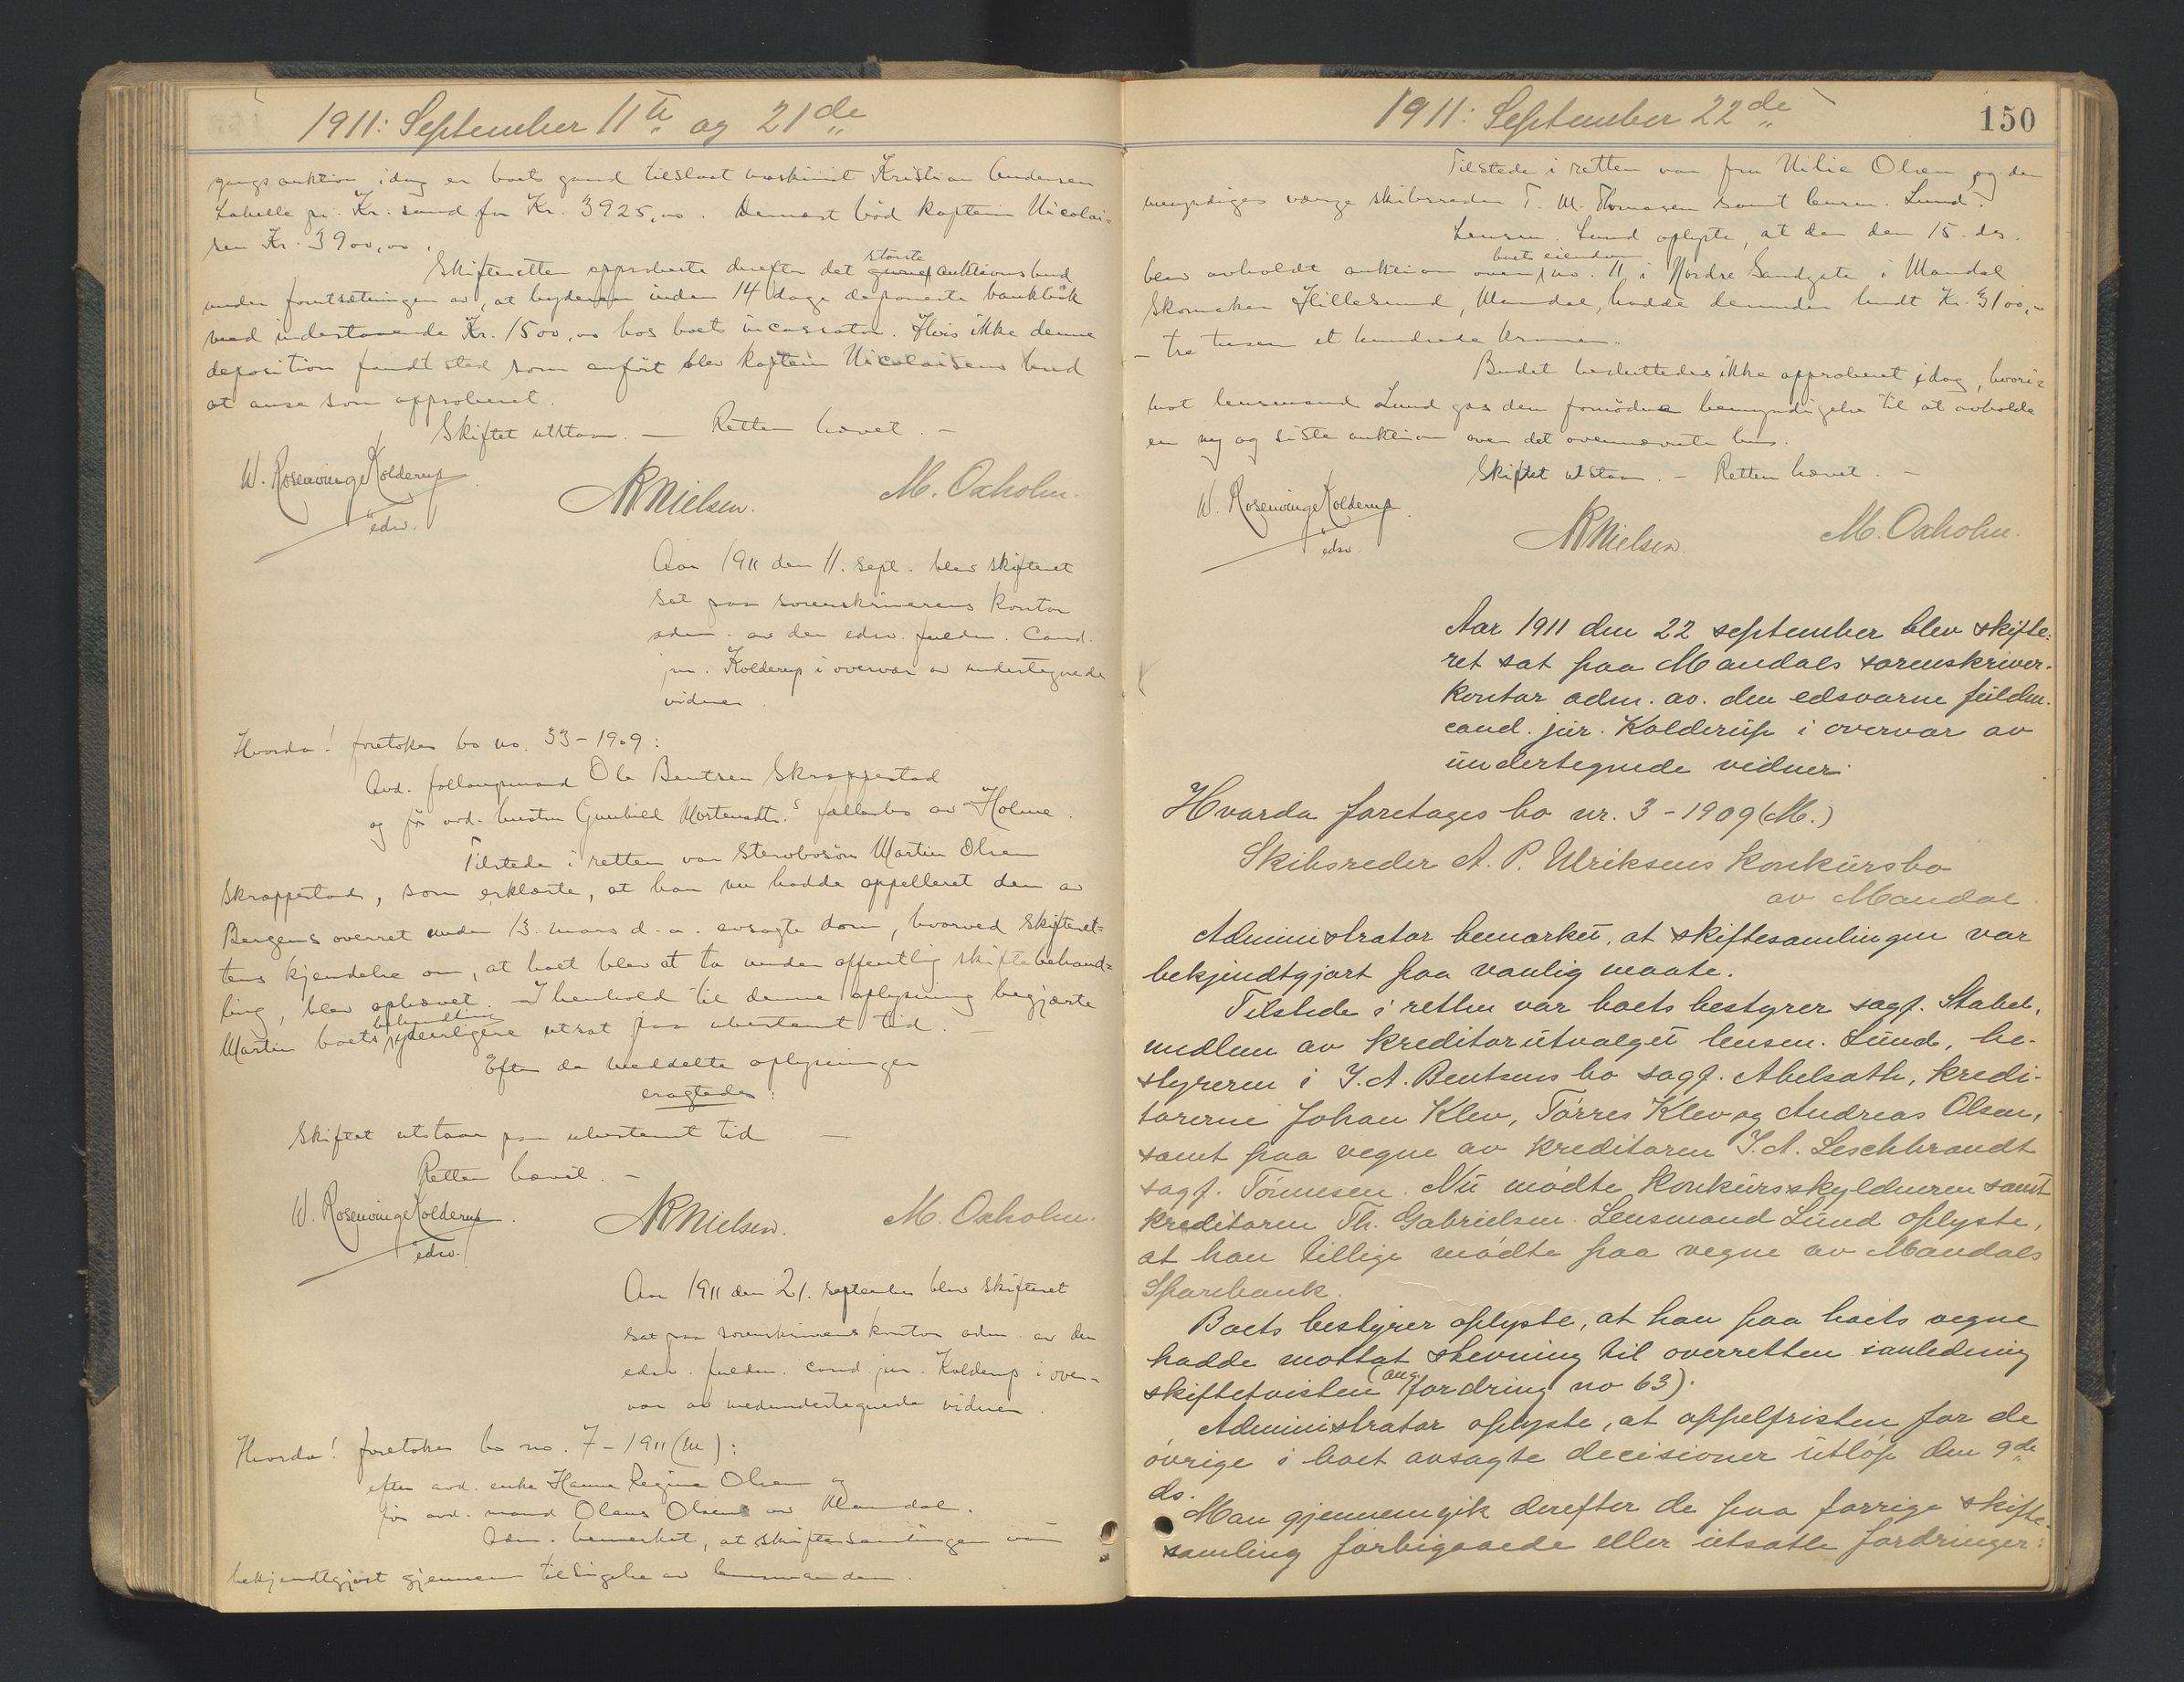 1911: September 11te og 21de
gangs auktion idag er boets gaard tilslaat maskinist Kristian Andersen
Labelle pr. Kr. sand for Kr. 3925,00. Dernæst bød kaptein Nicolai-
sen Kr. 3900,00.
Skifteretten approberte derefter det største auktionsbud
under forutsætningen av, at byderen inden 14 dage deponerte bankbok
med indestaaende Kr. 1500,00 hos boets incassator. Hvis ikke denne
deposition fandt sted som anført blev kaptein Nicolaisens bud
at anse som approberet.
Skiftet utstaar. — Retten hævet. —
W. Rosenvinge Kolderup
edsv.
NR Nielsen.
M. Oxholm.
Aar 1911 den 11. sept. blev skifteret
sat paa sorenskriverens kontor
adm. av den edsv. fuldm. Cand.
jur. Kolderup i overvær av undertegnede
vidner.
Hvorda! foretokes bo no. 33-1909:
Avd. follaugsmand Ole Bentsen Skrappestad
og før avd. hustru Gunhild Mortensdtr.s fællesbo av Holme.
Tilstede i retten var stervbosøn Martin Olsen
Skrappestad, som erklærte, at han nu hadde appelleret den av
Bergens overret under 13. mars d. a. avsagte dom, hvorved skifteret-
tens kjendelse om, at boet blev at ta under offentlig skiftebehand=
ling, blev ophævet. — I henhold til denne oplysning begjærte
Martin boets behandling yderligere utsat paa ubestemt tid. —
Efter de meddelte oplysninger
eragtedes:
Skiftet utstaar paa ubestemt tid —
Retten hævet. —
W. Rosenvinge Kolderup.
edsv.
NR Nielsen.
M. Oxholm.
Aar 1911 den 21. september blev skifteret
sat paa sorenskriverens kontor adm. av den
edsv. fuldm. cand. jur. Kolderup i over-
vær av medundertegnede vidner.
Hvorda! foretokes bo no. 7-1911 (M):
efter avd. enke Hanne Regine Olsen og
før avd. mand Olaus Olsen av Mandal.
Adm. bemerket, at skiftesamlingen var
bekjendtgjort gjennem tilsigelse av lensmanden.
1911: September 22de
150
Tilstede i retten var fru Nilie Olsen og den
umyndiges værge skibsreder T. M. Thomasen samt lensm. Lund.
Lensm. Lund oplyste, at der den 15. ds.
blev avholdt auktion over boets eiendom nr. 11 i Nordre Sandgate i Mandal
Skomaker Hillesund, Mandal, hadde derunder budt Kr. 3100,-
— tre tusen et hundrede kroner.
Budet besluttedes ikke approberet idag, hvori=
mot lensmand Lund gas den fornødne bemyndigelse til at avholde
en ny og siste auktion over det ovennævnte hus.
Skiftet utstaar. — Retten hævet. —
W. Rosenvinge Kolderup.
edsv.
NR Nielsen.
M. Oxholm.
Aar 1911 den 22 september blev skifte:
ret sat paa Mandals sorenskriver-
kontor adm. av. den edsvorne fuldm.
cand. jur. Kolderup i overvær av
undertegnede vidner.
Hvorda foretages bo nr. 3 - 1909 (M.)
Skibsreder A. P. Ulriksens konkursbo
av Mandal.
Administrator bemærket, at skiftesamlingen var
bekjendtgjort paa vanlig maate.
Tilstede i retten var boets bestyrer sagf. Stabel,
medlem av kreditorutvalget lensm. Lund, be-
styreren i J. A. Bentsens bo sagf. Abelsøth, kredi-
torerne Johan Klev, Tørres Klev og Andreas Olsen,
samt paa vegne av kreditoren J. A. Leschbrandt
sagf. Tønnesen. Nu mødte konkursskyldneren samt
kreditoren Th. Gabrielsen. Lensmand Lund oplyste,
at han tillige mødte paa vegne av Mandals
Sparebank.
Boets bestyrer oplyste, at han paa boets vegne
hadde mottat stevning til overretten i anledning
skiftetvisten (ang. fordring no 63).
Administrator oplyste, at appelfristen for de
øvrige i boet avsagte decisioner utløp den 9de
ds.
Man gjennemgik derefter de paa forrige skifte-
samling forbigaaede eller utsatte fordringer: